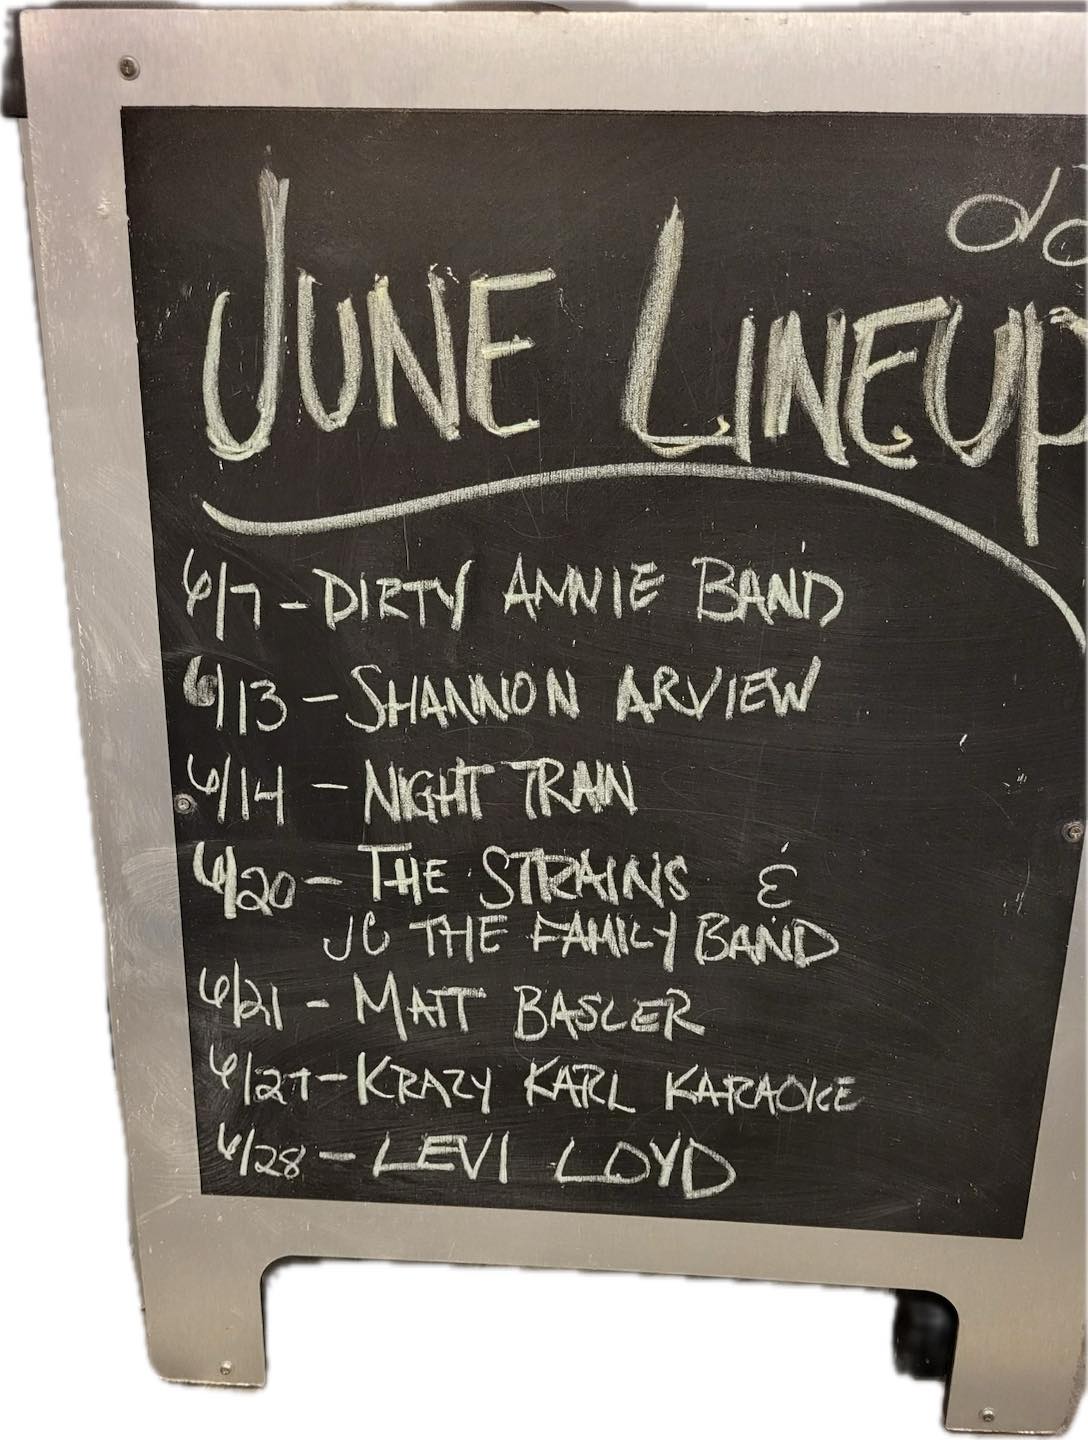 JUNE LINEUP
6/7 - DIRTY ANNIE BAND
6/13 - SHANNON ARVIEW
6/14 - NIGHT TRAIN
6/20 - THE STRAINS &
JC THE FAMILY BAND
6/21 - MATT BASLER
6/27 - KRAZY KARL KARAOKE
6/28 - LEVI LOYD